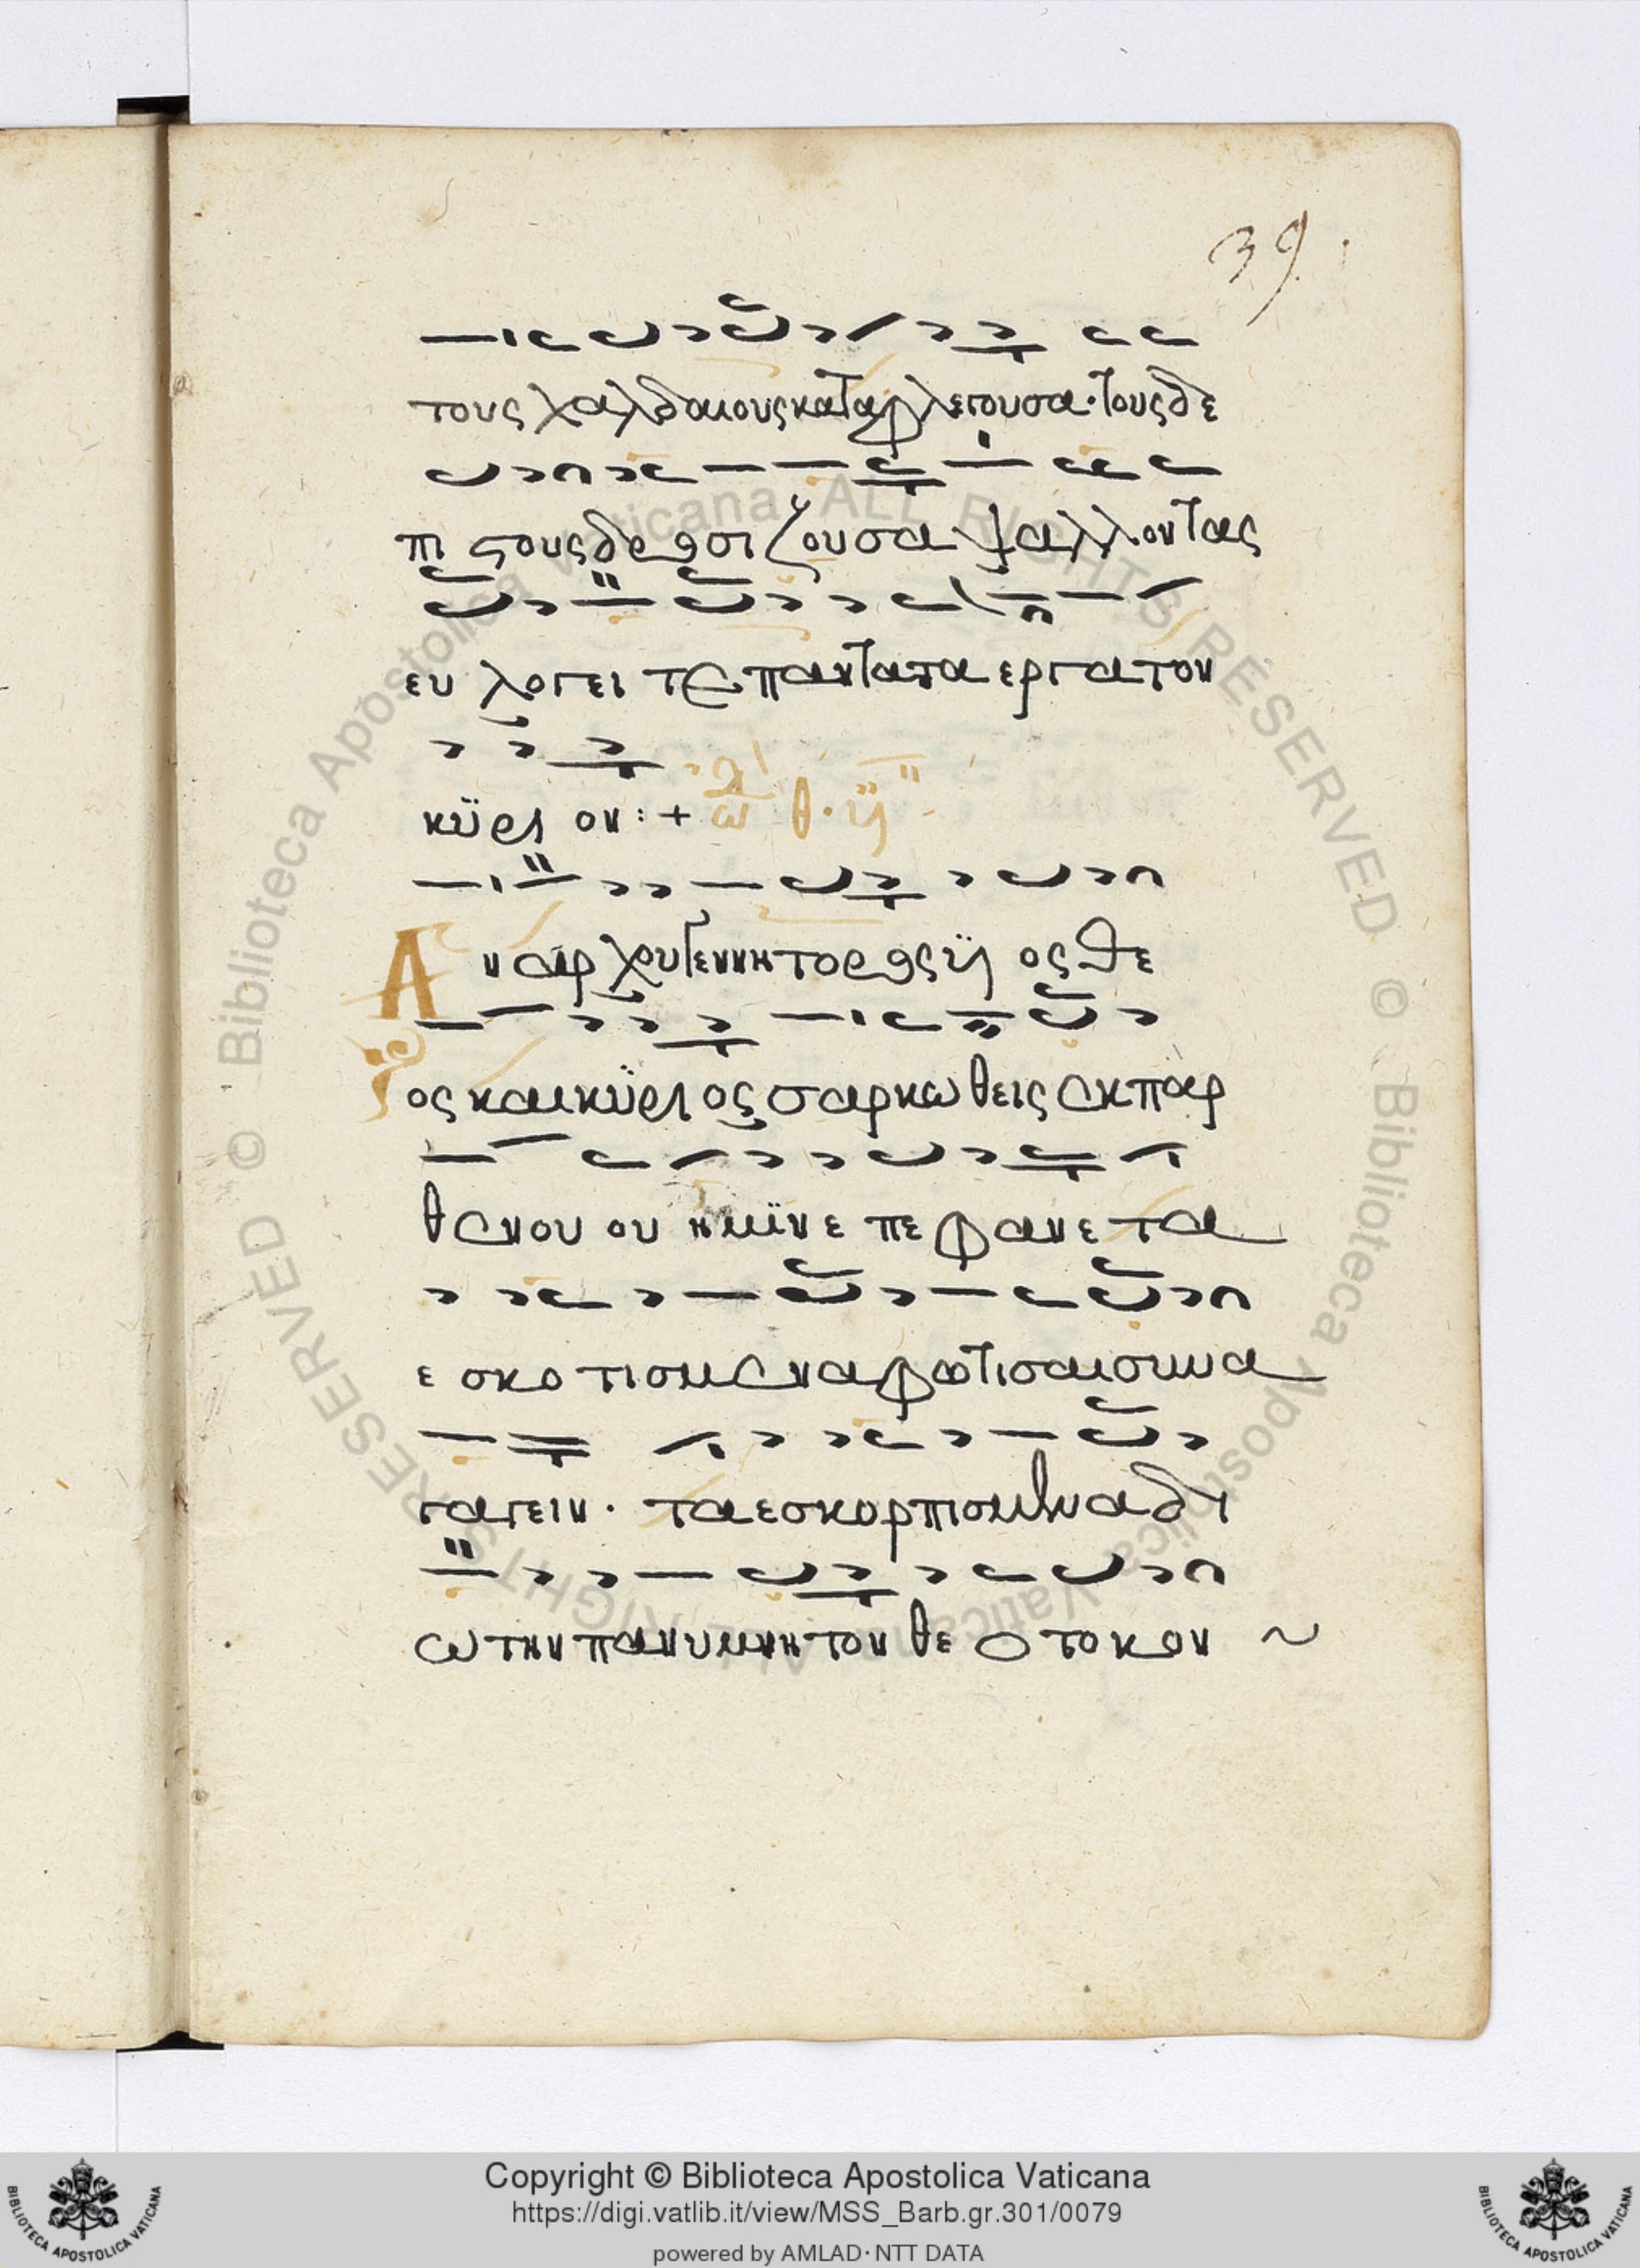 39.
τους χαλδαιους καταφλεγουσα· τους δε
πιστους δροσιζουσα ψαλλοντας
ευλογειτε παντα τα εργα τον
κϋριον :+ ωδ θ·
Αναρχου γεννητορος ϋιος θε
ος και κϋριος σαρκωθεις εκ παρ
θενου ουν ημϊν επεφανε τα
εσκοτισμενα φωτισαι συνα
γαγειν· τα εσκορπισμενα δι
ω την πανυμνητον θεοτοκον ~
Biblioteca Apostolica Vaticana ALL RIGHTS RESERVED ©
Biblioteca Apostolica Vaticana ALL RIGHTS RESERVED ©
Copyright © Biblioteca Apostolica Vaticana
https://digi.vatlib.it/view/MSS_Barb.gr.301/0079
powered by AMLAD·NTT DATA
BIBLIOTECA APOSTOLICA VATICANA
BIBLIOTECA APOSTOLICA VATICANA